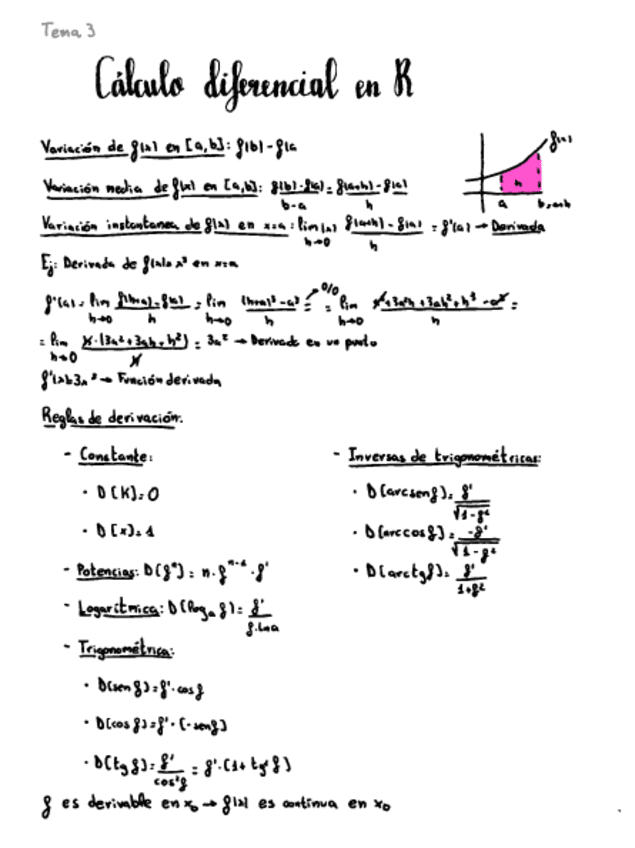 Tema 3
Cálculo diferencial en R
Variación de f(x) en [a,b]: f(b) - f(a
f(x)
h
a b=a+h
Variación media de f(x) en [a,b]: f(b)-f(a)/b-a = f(a+h)-f(a)/h
Variación instantanea de f(x) en x=a: lim h→0 f(a+h)-f(a)/h = f'(a) → Derivada
Ej: Derivada de f(x)=x³ en x=a
f'(a) = lim h→0 f(h+a)-f(a)/h = lim h→0 (h+a)³-a³/h = 0/0 = lim h→0 a³+3a²h+3ah²+h³-a³/h =
= lim h→0 h·(3a²+3ah+h²)/h = 3a² → Derivada en un punto
f'(x)=3x² → Función derivada
Reglas de derivación:
- Constante:
· D[K]=0
· D[x]=1
- Potencias: D[fⁿ] = n·fⁿ⁻¹·f'
- Logarítmica: D[logₐ f] = f'/f·Lna
- Trigonométrica:
· D[sen f] = f'·cos f
· D[cos f] = f'·(-sen f)
· D[tg f] = f'/cos²f = f'·(1+tg² f)
- Inversas de trigonométricas:
· D[arcsen f] = f'/√1-f²
· D[arccos f] = -f'/√1-f²
· D[arctg f] = f'/1+f²
f es derivable en x₀ → f(x) es continua en x₀